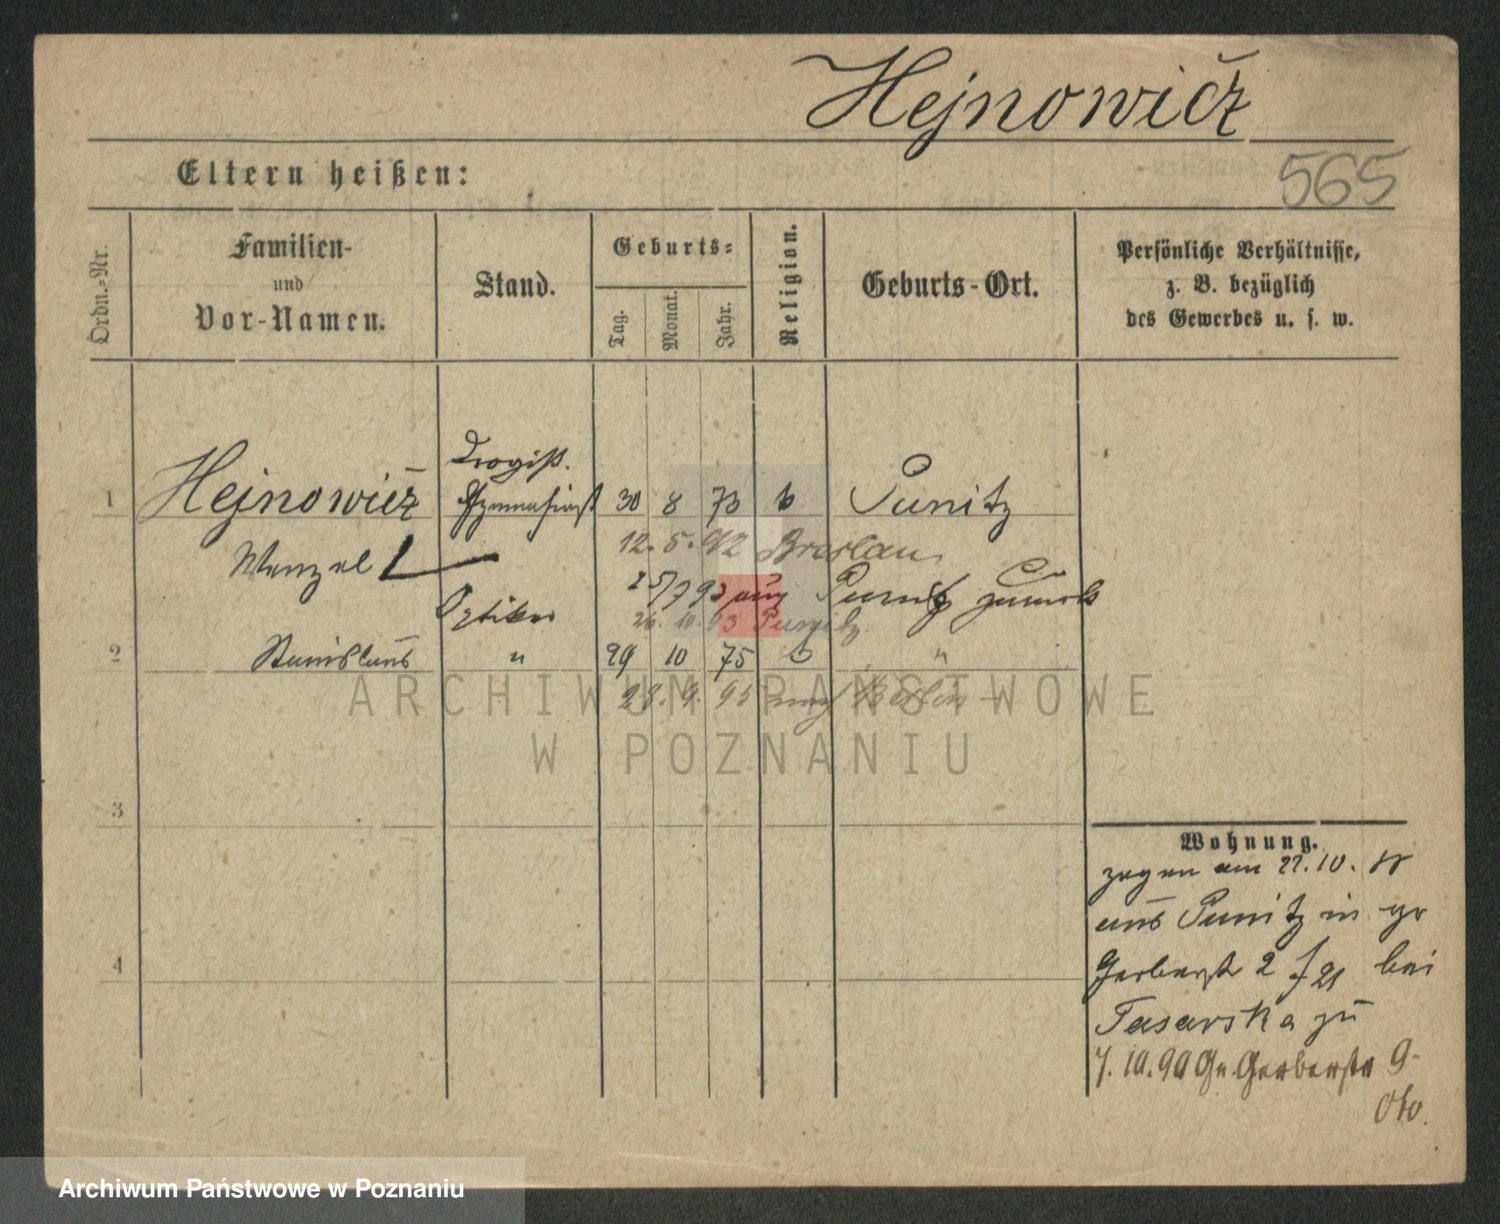 Hejnowicz
565
Eltern heißen:
Ordn.-Nr.
Familien-
und
Vor-Namen.
Stand.
Geburts-
Tag.
Monat.
Jahr.
Religion.
Geburts-Ort.
Persönliche Verhältnisse,
z. B. bezüglich
des Gewerbes u. s. w.
Drogist.
1 Hejnowicz Gymnasiast 30 8 73 k Punitz
12. 5. 92 Breslau
Wenzel
25/7 93 aus Punitz zurück
Optiker
26. 10. 93 Punitz
2 Stanislaus " 29 10 75 "
28. 9. 95 nach Berlin
3
4
Wohnung.
zogen am 22. 10. 88
aus Punitz in gr
Gerberstr 2 f 21 bei
Tasarska zu
7. 10. 90 Gr. Gerberstr 9
ARCHIWUM PAŃSTWOWE
W POZNANIU
Archiwum Państwowe w Poznaniu